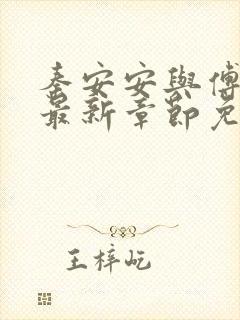 秦安安與傅
最新章節免
王梓屹